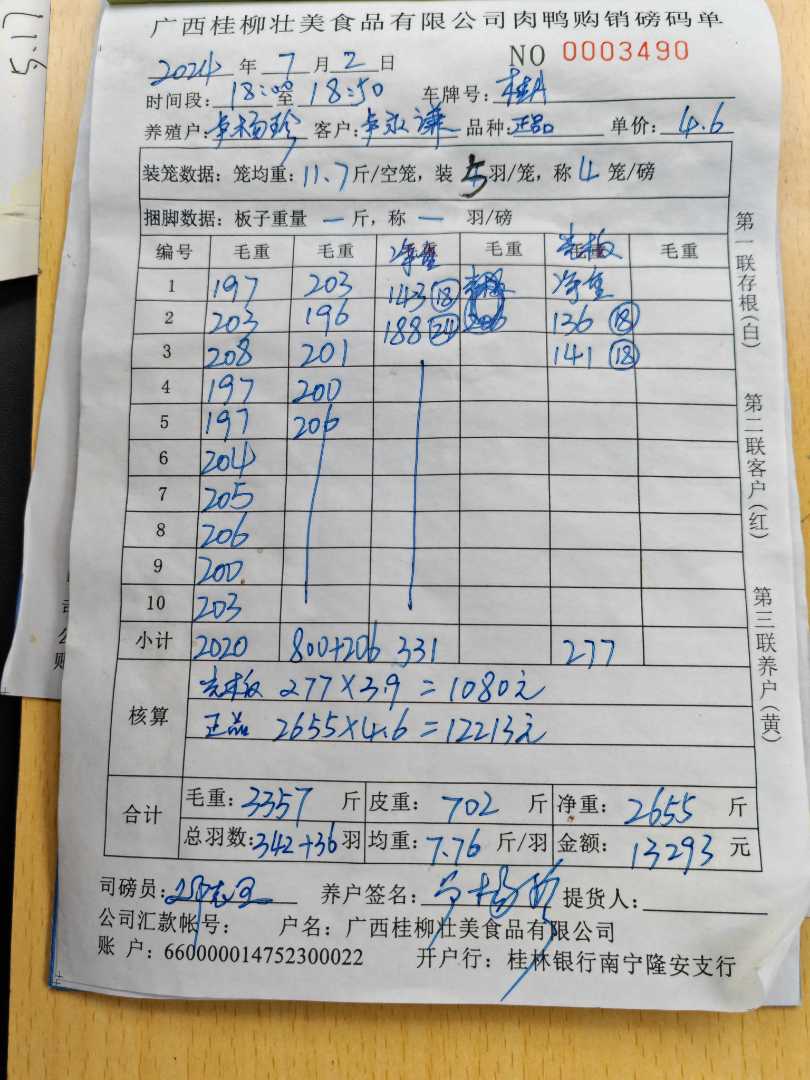 5.17
广西桂柳壮美食品有限公司肉鸭购销磅码单
NO 0003490
2024 年 7 月 2 日
时间段: 18:00 至 18:50 车牌号: 桂A
养殖户: 卓杨珍 客户: 卓永谦 品种: 正品 单价: 4.6
装笼数据: 笼均重: 11.7 斤/空笼, 装 5 羽/笼, 称 4 笼/磅
捆脚数据: 板子重量 — 斤, 称 — 羽/磅
编号 毛重 毛重 净重 毛重 毛重
1 197 203 143 (18) 净重
2 203 196 188 (24) 206 136 (18)
3 208 201 141 (18)
4 197 200
5 197 206
6 204
7 205
8 206
9 200
10 203
小计 2020 800+206 331 277
核算
277×3.9=1080元
正品 2655×4.6=12213元
合计
毛重: 3357 斤 皮重: 702 斤 净重: 2655 斤
总羽数: 342+36 羽 均重: 7.76 斤/羽 金额: 13293 元
司磅员: 养户签名: 卓杨珍 提货人:
公司汇款帐号: 户名: 广西桂柳壮美食品有限公司
账 户: 660000014752300022 开户行: 桂林银行南宁隆安支行
第一联存根(白)
第二联客户(红)
第三联养户(黄)